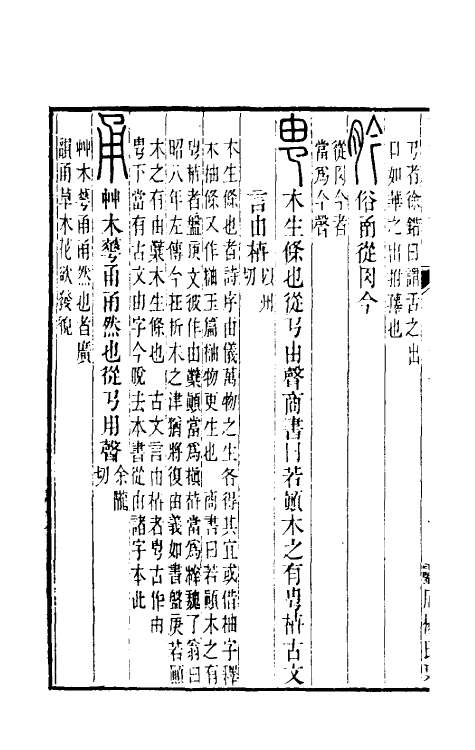 𢎘者徐鍇曰謂舌之出
口如華之出拊蕚也
肣 俗圅從肉今
從肉今者
當爲今聲
㽕 木生條也從𢎘由聲商書曰若顚木之有㽕枿古文
言由枿 以州切
木生條也者詩序由儀萬物之生各得其宜或借柚字釋
木抽條又作柚玉篇柚物更生也 商書曰若顚木之有
㽕枿者盤庚文彼作由櫱顚當爲槙枿當爲魏了翁曰
昭八年左傳今在析木之津猶將復由義如書盤庚若顚
木之有由蘖木生條也 古文言由枿者㽕古作由
㽕下當有古文由字今脫去本書從由諸字本此
甬 艸木𠌶甬甬然也從𢎘用聲 余隴切
艸木𠌶甬甬然也者廣
韻甬草木花欲發貌